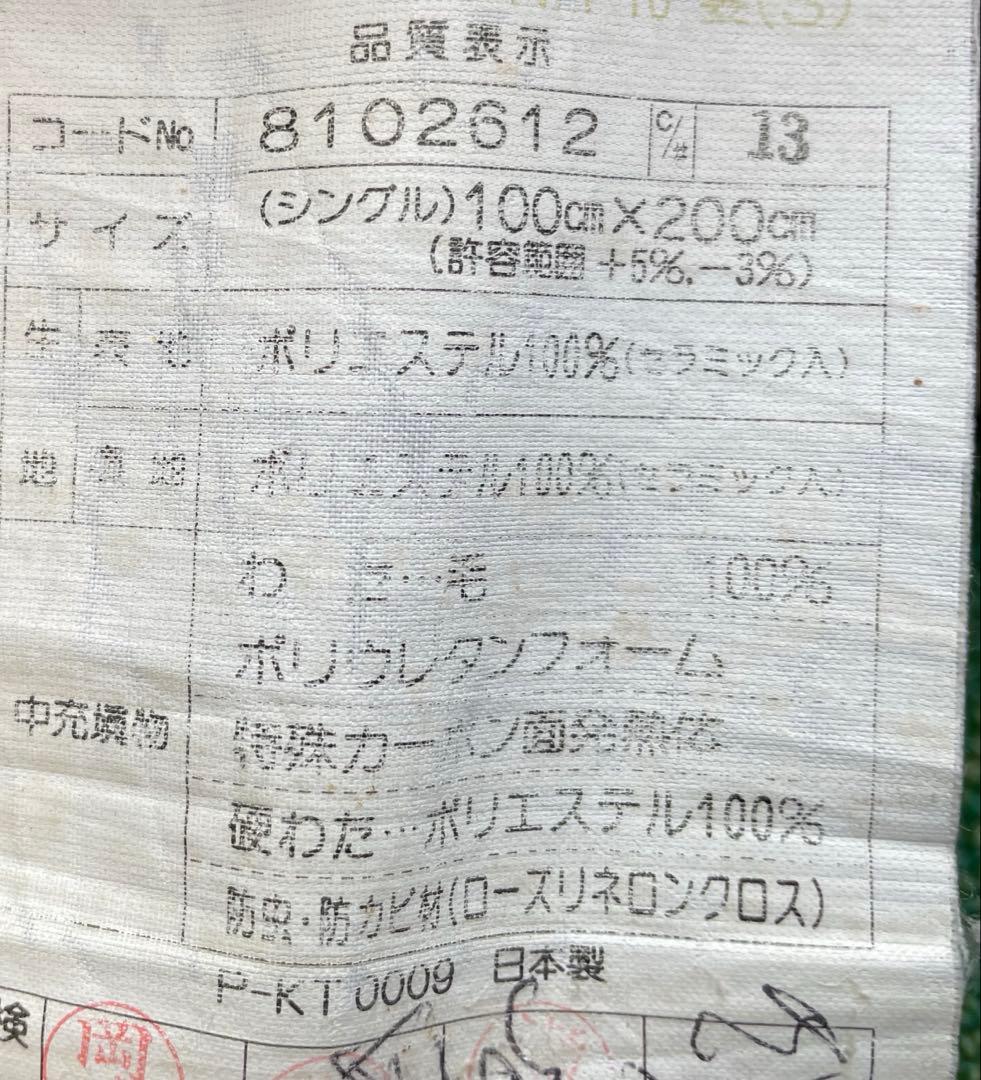 品質表示
コードNo 8102612 C/# 13
サイズ (シングル)100cm×200cm
(許容範囲+5%.-3%)
生 表地 ポリエステル100%(セラミック入)
地 裏地 ポリエステル100%(セラミック入)
わた…毛 100%
ポリウレタンフォーム
中充填物 特殊カーボン面発熱体
硬わた…ポリエステル100%
防虫・防カビ材(ローズリネロンクロス)
P-KT0009 日本製
検